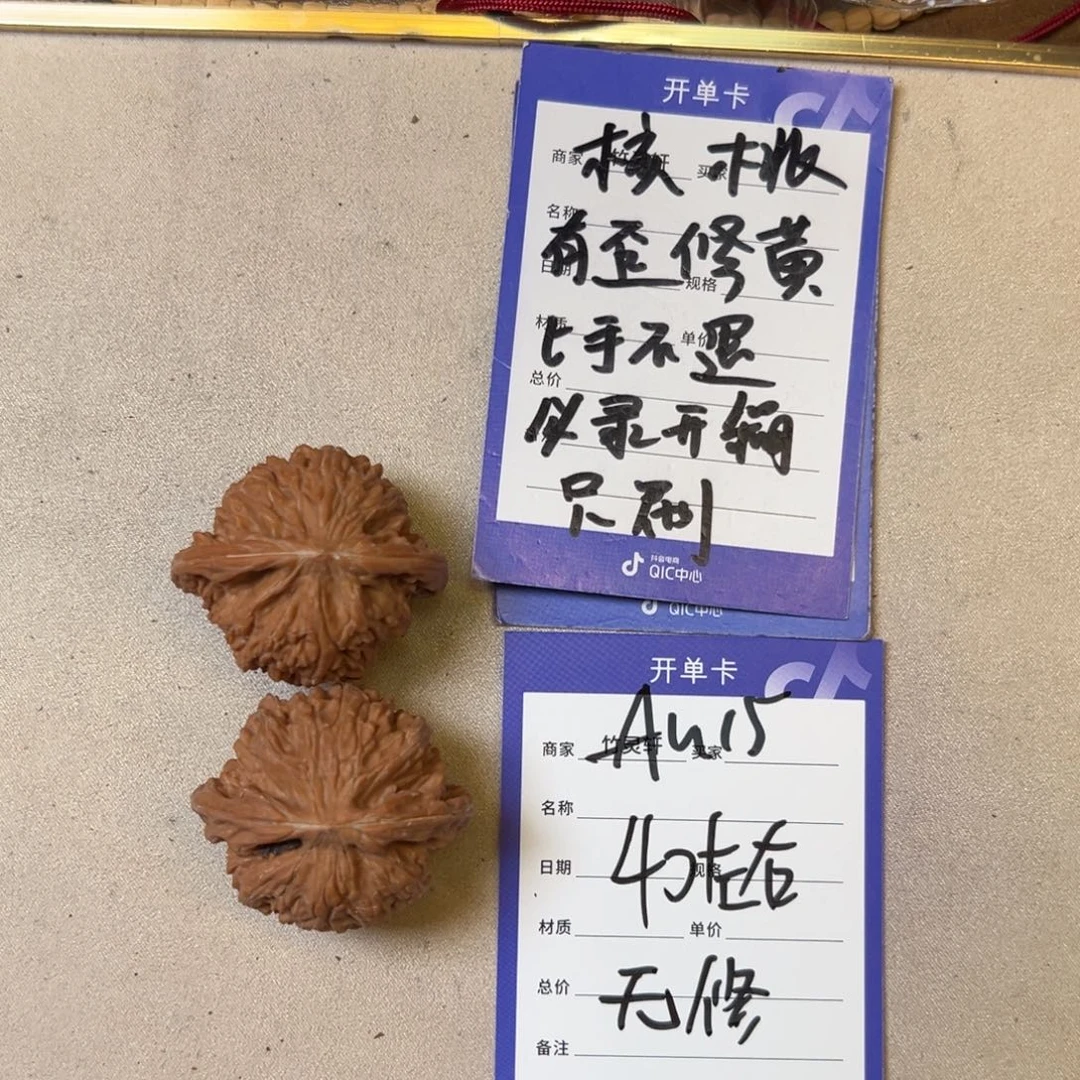 开单卡
核桃
商家 竹灵轩 买家
名称
有歪修黄
日期 规格
材质 单价
上手不退
总价
以录开编
只刷
抖音电商
QIC中心
QIC中心
开单卡
Au15
商家 竹灵轩 买家
名称
40左右
日期 规格
材质 单价
总价
无修
备注